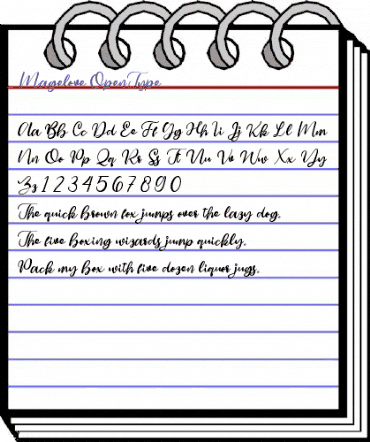 Magelove OpenType
Aa Bb Cc Dd Ee Ff Gg Hh Ii Jj Kk Ll Mm
Nn Oo Pp Qq Rr Ss Tt Uu Vv Ww Xx Yy
Zz 1 2 3 4 5 6 7 8 9 0
The quick brown fox jumps over the lazy dog.
The five boxing wizards jump quickly.
Pack my box with five dozen liquor jugs.